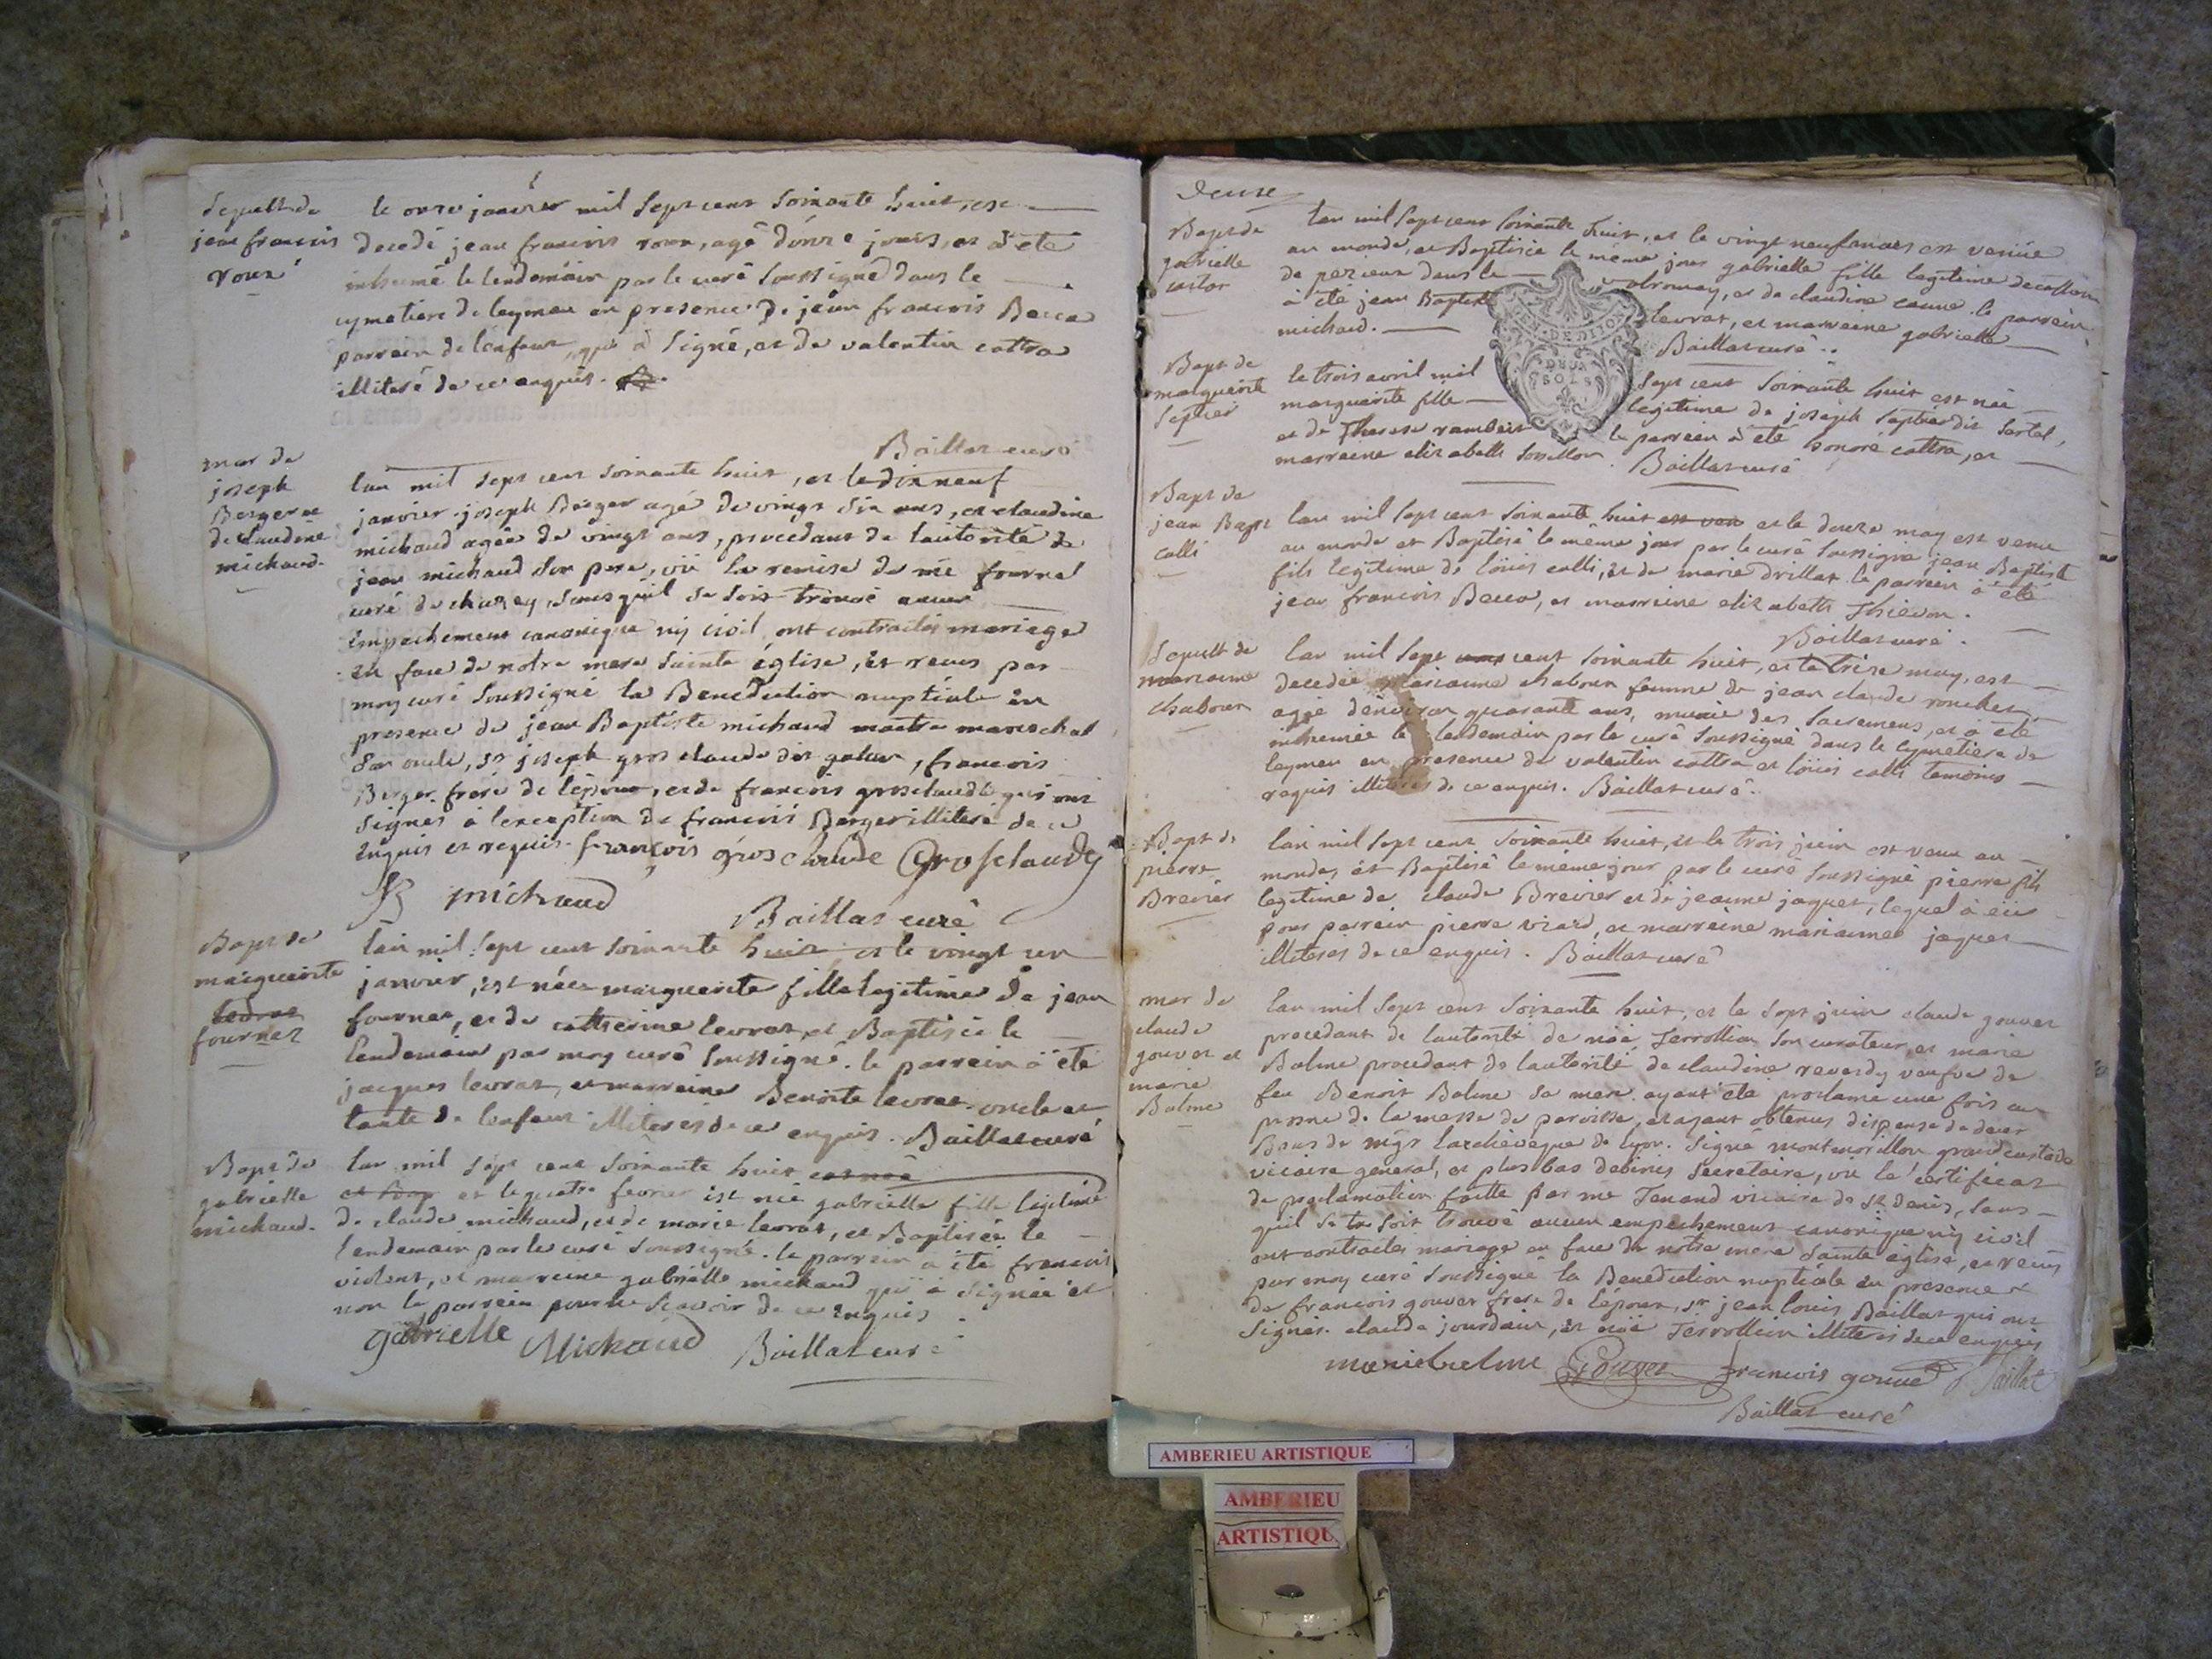 Sepult de
jean francois
roux
le onze janvier mil sept cent soixante huit, est
decedé jean francois roux, agé d'onze jours, et a été
inhumé le lendemain par le curé soussigné dans le
cymetiere de leymen en presence de jean francois Becca
parrein de l'enfant, qui a signé, et de valentin cottra
illiteré de ce enquis.
Baillat curé
mar de
joseph
Berger et
de claudine
michaud
lan mil sept cent soixante huit, et le dix neuf
janvier joseph Berger agé de vingt six ans, et claudine
michaud agée de vingt ans, procedant de lautorité de
jean michaud son pere, vü la remise de me fournel
curé de chazey, sans quil se soit trouvé aucun
empechement canonique nij civil ont contractés mariage
en face de notre mere sainte église, et reçus par
moy curé soussigné la Benediction nuptiale en
presence de jean Baptiste michaud maitre mareschal
son oncle, sr joseph gros claude dit galan, francois
Berger frere de lépoux, et de francois grosclaude qui ont
signes à lexception de francois Berger illiteré de ce
enquis et requis. françois gros claude Grosclaude
JB michaud
Baillat curé
Bapt de
marguerite
fournet
lan mil sept cent soixante huit et le vingt un
janvier, est née marguerite fille legitime de jean
fournet, et de catherine levrat, et Baptisée le
lendemain par moy curé soussigné. le parrein a été
jacques levrat, et marreine Benoite levrat oncle et
tante de lenfant illiterés de ce enquis. Baillat curé
Bapt de
gabrielle
michaud.
lan mil sept cent soixante huit est née
et le quatre fevrier est née gabrielle fille legitime
de claude michaud, et de marie levrat, et Baptisée le
lendemain par le curé soussigné. le parrein a été francois
violent, et marreine gabrielle michaud qui a signée et
non le parrein pour ne scavoir de ce enquis
gabrielle Michaud Baillat curé
deuze
Bapt de
gabrielle
castor
lan mil sept cent soixante huit, et le vingt neuf mars est venüe
au monde, et Baptisée le même jour gabrielle fille legitime de
de perieux dans le valromay, et de claudine canne. le parrein
à été jean Baptiste levrat, et marreine gabrielle
michaud. Baillat curé.
GEN. DE DIJON
DEUX
SOLS
Bapt de
marguerite
Septier
le trois avril mil sept cent soixante huit est née
marguerite fille legitime de joseph Septier dit Sartel,
et de Therese rambert le parrein à été honoré cottra, et
marreine elizabeth Baillat curé
Bapt de
jean Bapt
calli
lan mil sept cent soixante huit est ven et le douze may est venu
au monde et Baptisé le même jour par le curé soussigné jean Baptiste
fils legitime de löuis calli, et de marie Drillat le parrein à été
jean francois Becca, et marreine elizabeth Thievon.
Baillat curé.
Sepult de
marianne
chabour
lan mil sept cent soixante huit, et le trése may, est
decedée marianne chabour femme de jean claude rouchet
agée d'environ quarante ans, munie des sacremens, et à été
inhumée le lendemain par le curé soussigné dans le cymetiere de
leymen en presence de valentin cottra et löuis calli temoins
requis illiterés de ce enquis. Baillat curé.
Bapt de
pierre
Brevier
lan mil sept cent soixante huit, et le trois juin est venu au
monde, et Baptisé le même jour par le curé soussigné pierre fils
legitime de claude Brevier et de jeanne jaquet, lequel à eü
pour parrein pierre viard, et marreine marianne jaquet
illiterés de ce enquis. Baillat curé
mar de
claude
gouvet et
marie
Balme
lan mil sept cent soixante huit, et le sept juin claude gouvet
procedant de lautorité de noë Terrollion son curateur, et marie
Balme procedant de lautorité de claudine reverdy veufve de
feu Benoit Balme sa mere. ayant été proclamé une fois au
prosne de la messe de paroisse, et ayant obtenus dispense de deux
Bans de mgr larchevêque de lyon. signé montmorillon grand custode
vicaire general, et plus bas secretaire, vü le certificat
de proclamation faitte par me Tenand vicaire de st denis, sans
quil se soit trouvé aucun empechement canonique nij civil
ont contractés mariage en face de notre mere sainte église, et reçus
par moy curé soussigné la Benediction nuptiale en presence
de francois gouvet frere de lépoux, sr jean louis Baillat qui ont
signés. claude jourdain, et noë Terrollion illiterés de ce enquis
marie balme Gouvet francois gouvet Baillat
Baillat curé
AMBERIEU ARTISTIQUE
AMBERIEU
ARTISTIQU